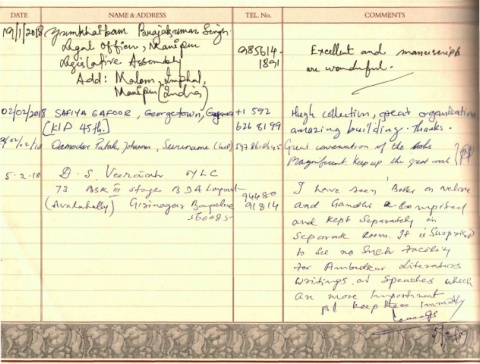 DATE NAME & ADDRESS TEL. No. COMMENTS
19/1/2018 Yumkhaibam Singh
Legal Officer, Manipur
Legislative Assembly
Add: Malom, Imphal,
Manipur (India)
985614-
1891
Excellent and manuscripts
are wonderful.
02/02/2018 SAFIYA GAFOOR, Georgetown, Guyana
(KIP 45th)
+1 592
626 8199
Hugh collection, great organisation
amazing building. Thanks.
Suriname
Great conservation of the books
Magnificent keep up the great work
5-2-18 D. S. Veeraiah
73 BSK III stage BDA Layout
(Avalahally) Girinagar Bangalore
560085
94480
91814
I have seen Books on
and Gandhi compiled
and kept Separately in
Separate Room. It is Surprised
to see no Such facility
for Ambedkar literatures
writings, Speaches which
are more Important
pl keep them Immdly